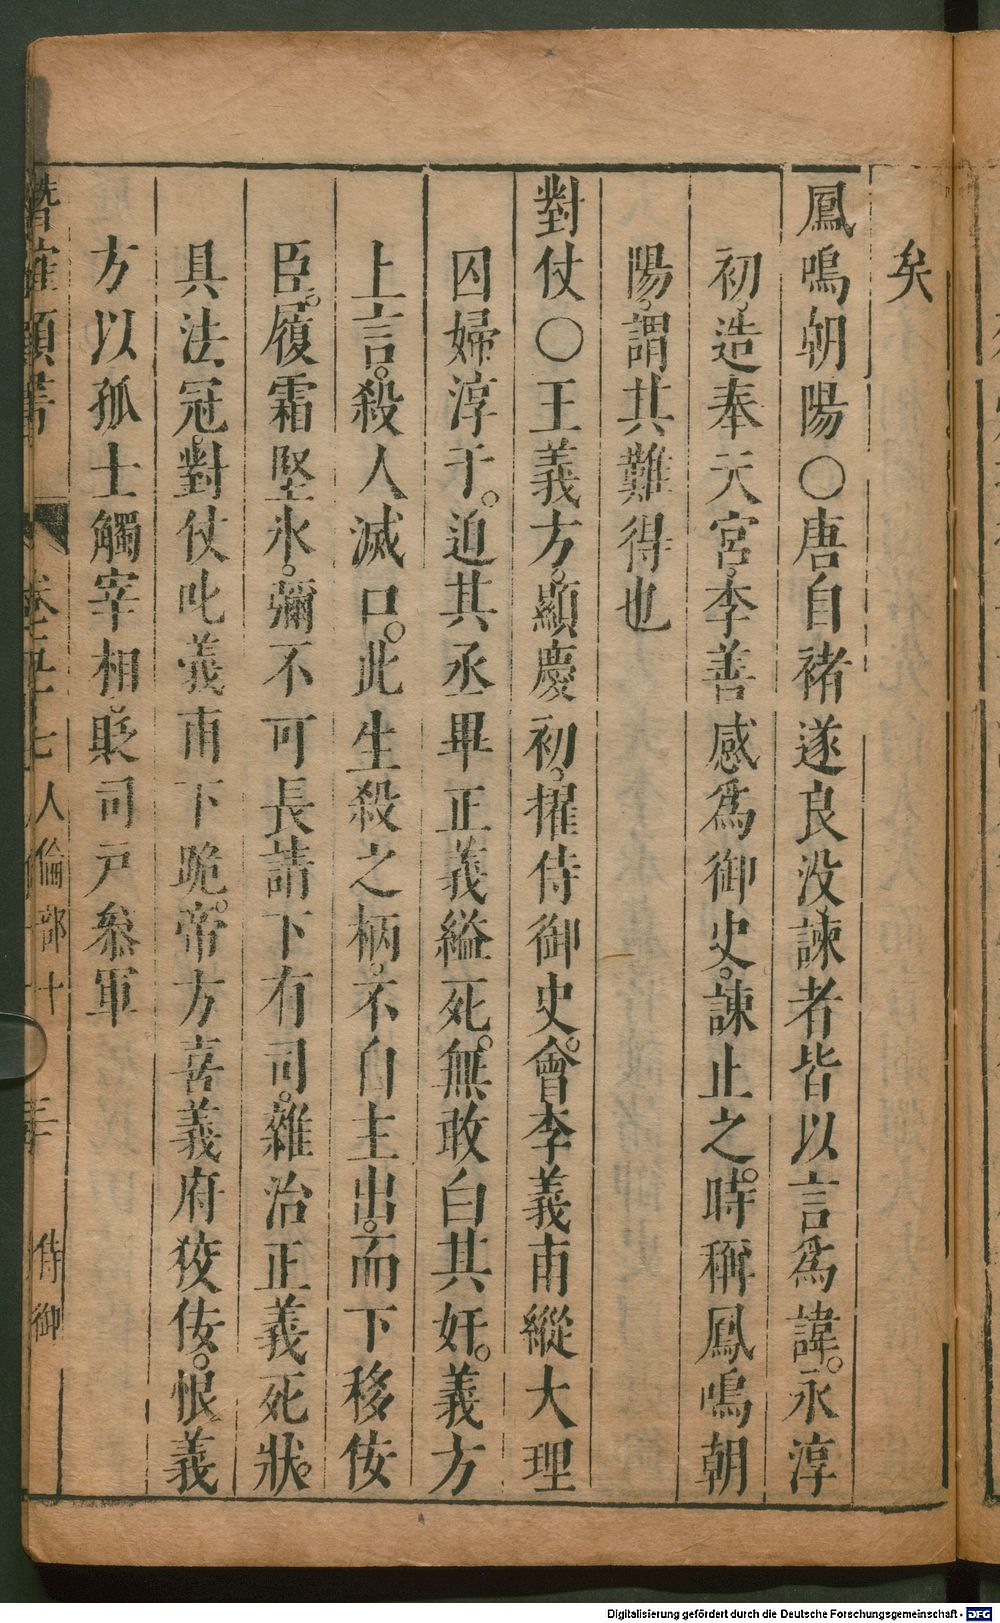 矣
鳳鳴朝陽○唐自褚遂良没諫者皆以言爲諱。永淳
初。造奉天宮。李善感爲御史。諫止之。時稱鳳鳴朝
陽。謂其難得也
對仗○王義方。顯慶初。擢侍御史。會李義甫縱大理
囚婦淳于。迫其丞畢正義縊死。無敢白其奸。義方
上言。殺人滅口。此生殺之柄。不自主出。而下移佞
臣。履霜堅氷。彌不可長請下有司。雜治正義死狀。
具法冠。對仗叱義甫下跪。帝方喜義府狡佞。恨義
方以孤士觸宰相貶司戸叅軍
潛確類書 卷五十七 人倫部十 侍御
Digitalisierung gefördert durch die Deutsche Forschungsgemeinschaft - DFG